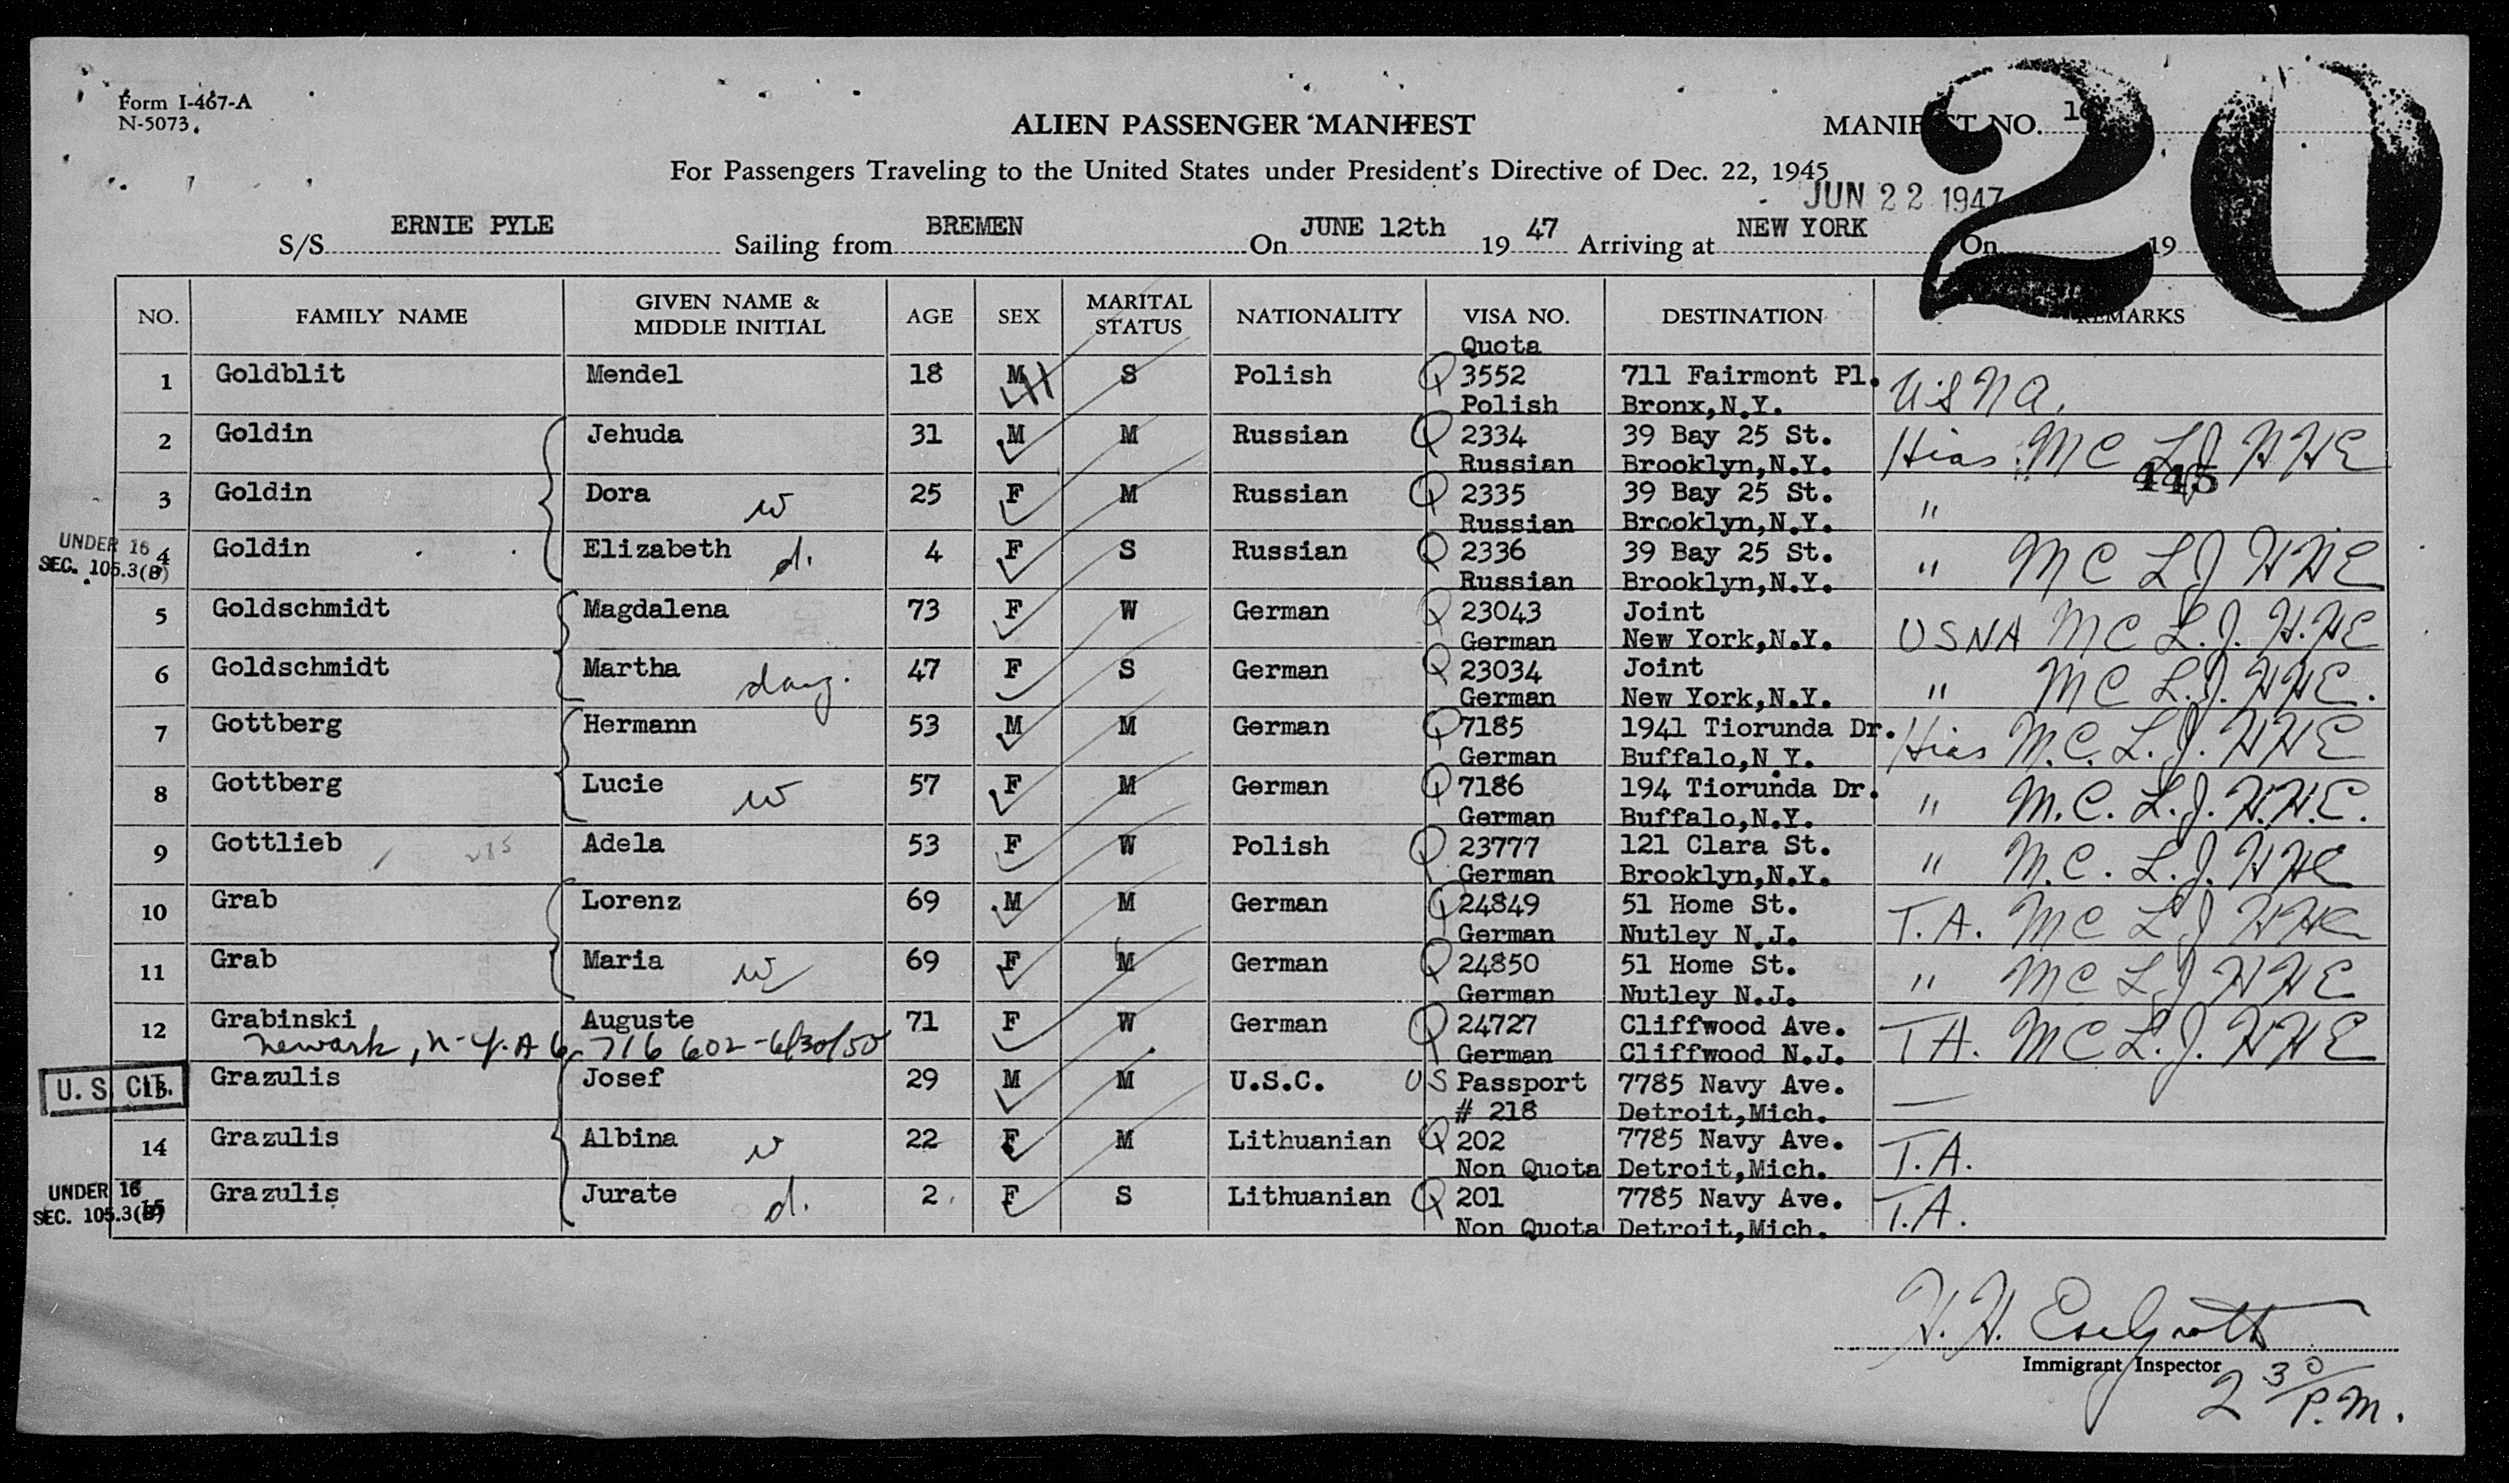 Form I-467-A
N-5073.
ALIEN PASSENGER MANIFEST
MANIFEST NO.
20
For Passengers Traveling to the United States under President's Directive of Dec. 22, 1945
JUN 22 1947
S/S ERNIE PYLE Sailing from BREMEN On JUNE 12th 19 47 Arriving at NEW YORK On 19
NO. FAMILY NAME GIVEN NAME & MIDDLE INITIAL AGE SEX MARITAL STATUS NATIONALITY VISA NO. DESTINATION REMARKS
Quota
1 Goldblit Mendel 18 M S Polish Q 3552 711 Fairmont Pl. USNA.
Polish Bronx,N.Y.
2 Goldin Jehuda 31 M M Russian Q 2334 39 Bay 25 St. Hias MC LJ HHE
Russian Brooklyn,N.Y. 445
3 Goldin Dora w 25 F M Russian Q 2335 39 Bay 25 St. "
Russian Brooklyn,N.Y.
UNDER 16 4 Goldin Elizabeth d. 4 F S Russian Q 2336 39 Bay 25 St. " MC LJ HHE
SEC. 105.3(B) Russian Brooklyn,N.Y.
5 Goldschmidt Magdalena 73 F W German Q 23043 Joint USNA MC L.J. H.HE
German New York,N.Y.
6 Goldschmidt Martha daug. 47 F S German Q 23034 Joint " MC L.J. HHE.
German New York,N.Y.
7 Gottberg Hermann 53 M M German Q 7185 1941 Tiorunda Dr. Hias M.C. L.J. HHE
German Buffalo,N.Y.
8 Gottberg Lucie w 57 F M German Q 7186 194 Tiorunda Dr. " M.C. L.J. H.H.E.
German Buffalo,N.Y.
9 Gottlieb Adela 53 F W Polish Q 23777 121 Clara St. " M.C. L.J. HHE
German Brooklyn,N.Y.
10 Grab Lorenz 69 M M German Q 24849 51 Home St. T.A. MC LJ HHE
German Nutley N.J.
11 Grab Maria w 69 F M German Q 24850 51 Home St. " MC LJ HHE
German Nutley N.J.
12 Grabinski Auguste 71 F W German Q 24727 Cliffwood Ave. TA. MC L.J. HHE
Newark, N-J. A6 716 602-6/30/50 German Cliffwood N.J.
U.S. CIT. Grazulis Josef 29 M M U.S.C. US Passport 7785 Navy Ave. —
# 218 Detroit,Mich.
14 Grazulis Albina w 22 F M Lithuanian Q 202 7785 Navy Ave. T.A.
Non Quota Detroit,Mich.
UNDER 16 15 Grazulis Jurate d. 2 F S Lithuanian Q 201 7785 Navy Ave. T.A.
SEC. 105.3(B) Non Quota Detroit,Mich.
H.H.
Immigrant Inspector
2 30 P.M.